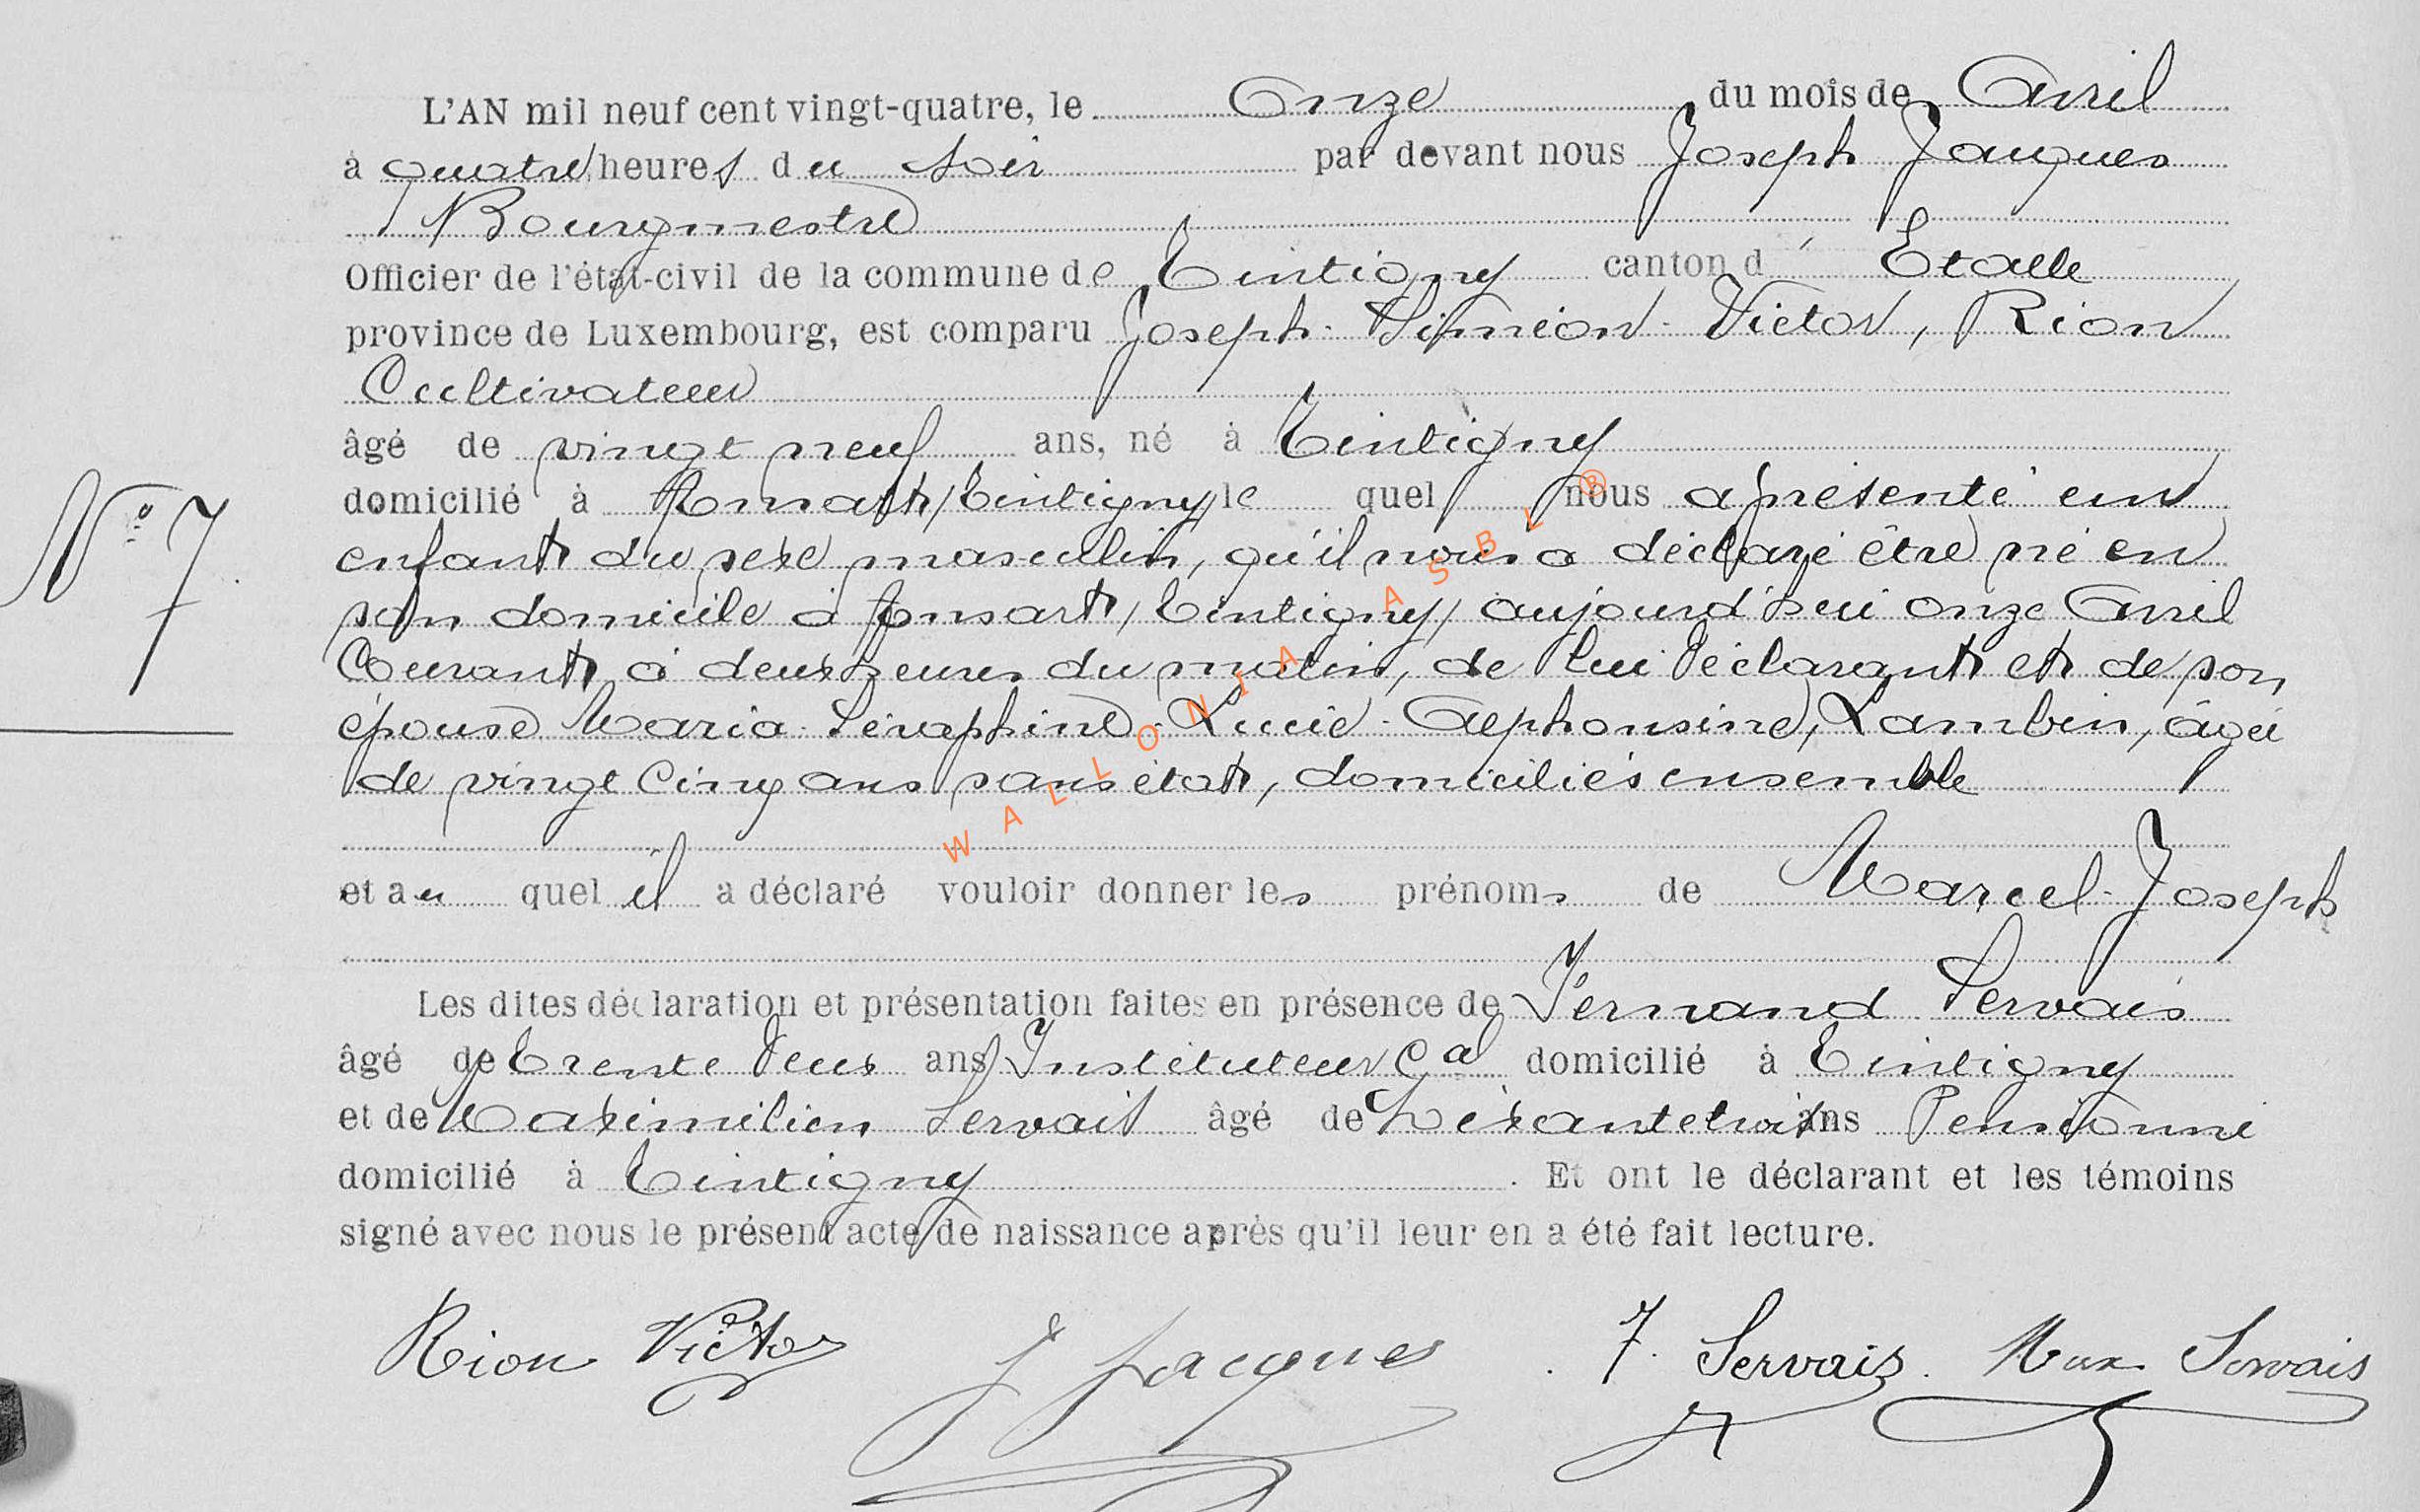 L'AN mil neuf cent vingt-quatre, le Onze du mois de Avril
à quatre heures du soir par devant nous Joseph Jacques
Bourgmestre
Officier de l'état-civil de la commune de Tintigny canton d' Etalle
province de Luxembourg, est comparu Joseph-Siméon-Victor, Rion
Cultivateur
âgé de vingt neuf ans, né à Tintigny
domicilié à Ansart, (Tintigny) lequel nous a présenté un
N° 7
enfant du sexe masculin, qu'il nous a déclaré être né en
son domicile à Ansart, (Tintigny) aujourd'hui onze Avril
Courant à deux heures du matin, de lui Déclarant et de son
épouse Maria-Séraphine-Lucie-Alphonsine, Lambin, âgée
de vingt Cinq ans sans état, domiciliés ensemble
et au quel il a déclaré vouloir donner les prénoms de Marcel-Joseph
Les dites déclaration et présentation faites en présence de Fernand Servais
âgé de Trente Deux ans Instituteur Cal domicilié à Tintigny
et de Maximilien Servais âgé de ans Pensionné
domicilié à Tintigny . Et ont le déclarant et les témoins
signé avec nous le présent acte de naissance après qu'il leur en a été fait lecture.
Rion Victor J Jacques F. Servais. Max Servais
WALLONIA ASBL ®